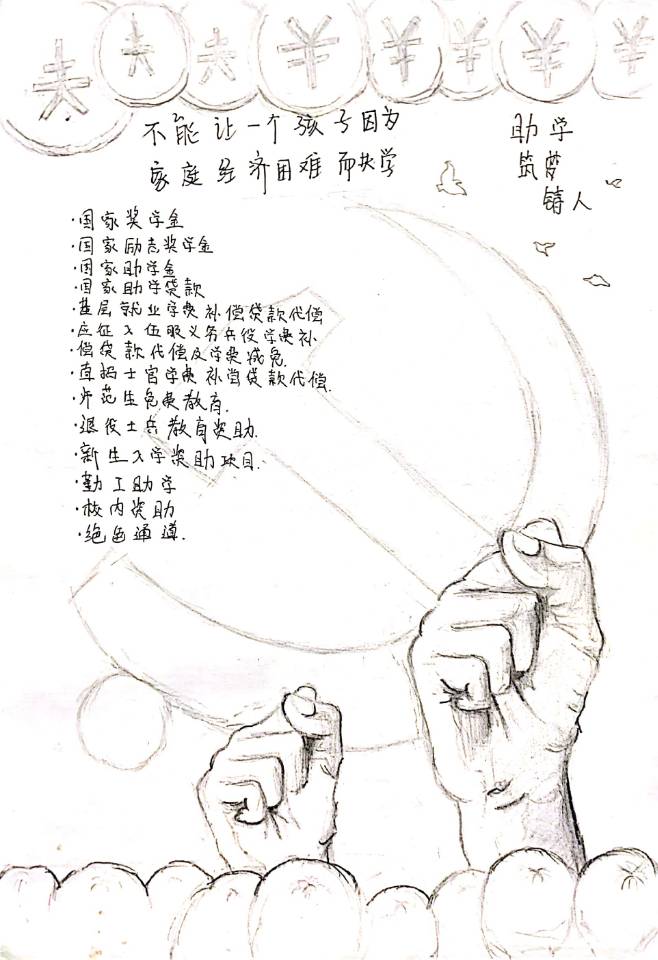 ¥ ¥ ¥ ¥ ¥
不能让一个孩子因为
家庭经济困难而失学
助学
筑梦
铸人
·国家奖学金
·国家励志奖学金
·国家助学金
·国家助学贷款
·基层就业学费补偿贷款代偿
·应征入伍服义务兵役学费补
·偿贷款代偿及学费减免.
·直招士官学费补偿贷款代偿.
·师范生免费教育.
·退役士兵教育资助.
·新生入学奖助项目.
·勤工助学
·校内奖助
·绝色通道.